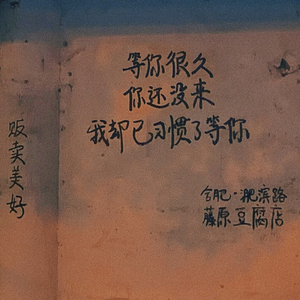 等你很久
你还没来
我却已习惯了等你
贩卖美好
合肥·淝滨路
藤原豆腐店